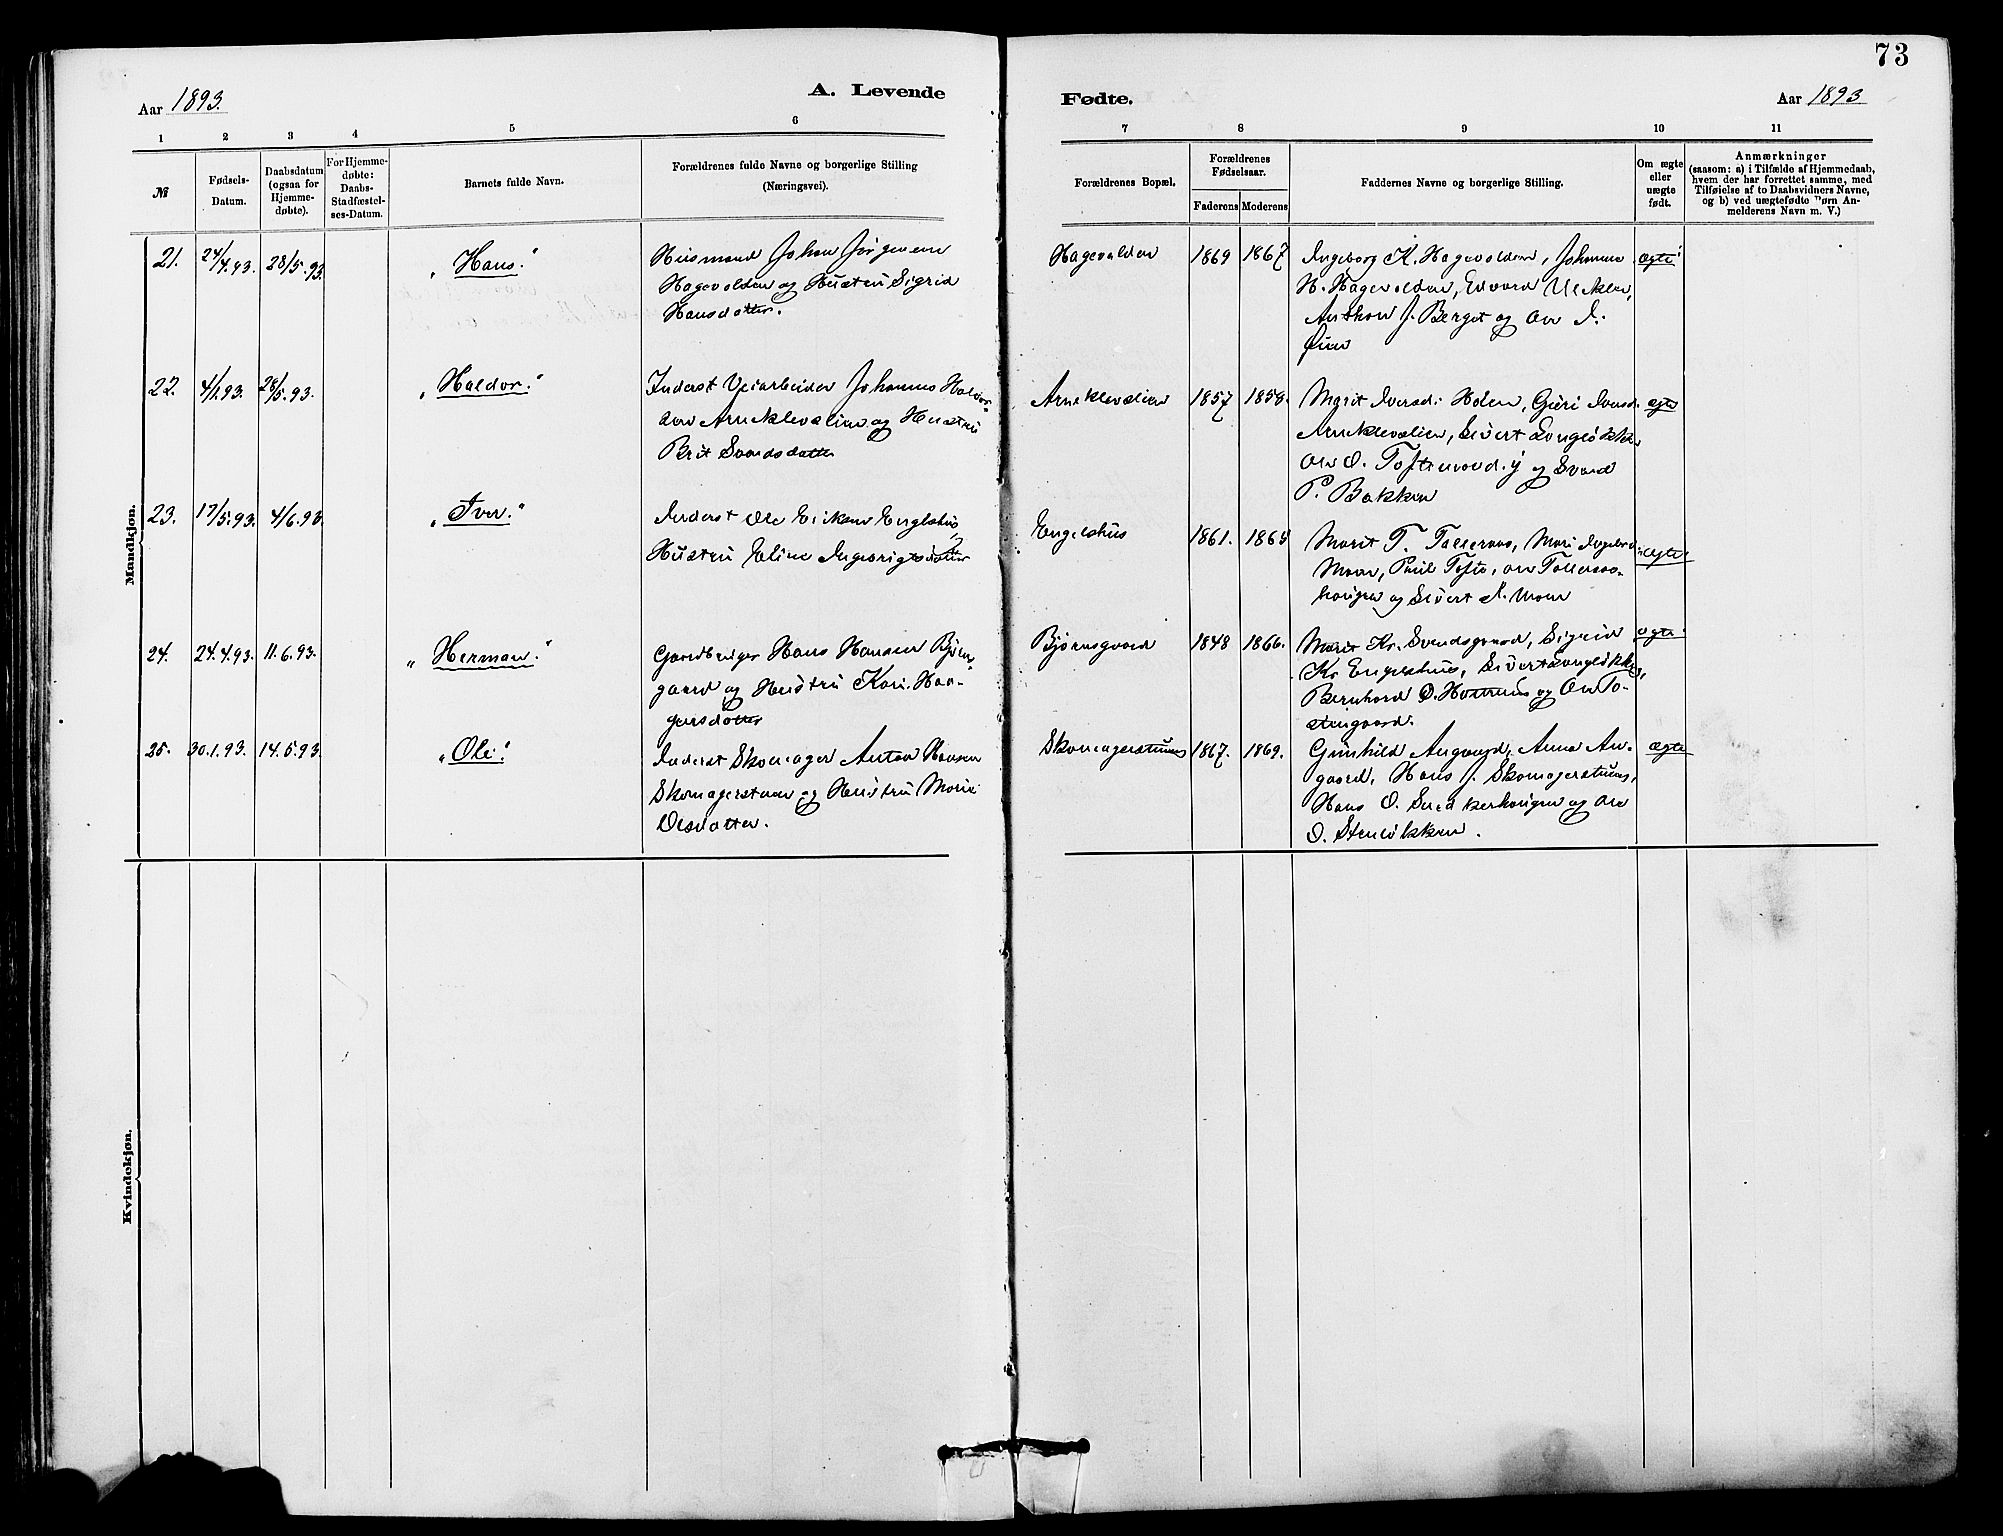 73
Aar 1893.
A. Levende
Fødte.
Aar 1893
1 2 3 4 5 6 7 8 9 10 11
№
Fødsels-
Datum.
Daabsdatum
(ogsaa for
Hjemme-
døbte).
For Hjemme-
døbte:
Daabs-
Stadfæstel-
ses-Datum.
Barnets fulde Navn.
Forældrenes fulde Navne og borgerlige Stilling
(Næringsvei).
Forældrenes Bopæl.
Forældrenes
Fødselsaar.
Faderens Moderens
Faddernes Navne og borgerlige Stilling.
Om ægte
eller
uægte
født.
Anmærkninger
(saasom: a) i Tilfælde af Hjemmedaab,
hvem der har forrettet samme, med
Tilføielse af to Daabsvidners Navne,
og b) ved uægtefødte Børn An-
melderens Navn m. V.)
Mandkjøn.
21. 24/4.93. 28/5.93. „Hans.“
Husmand Johan Jørgensen
Hagevolden og Hustru Sigrid
Hansdatter.
Hagevolden 1869 1867
Ingeborg K. Hagevolden, Johanne
H. Hagevolden, Edvard
J. Berget og
ægte
22. 4/1.93. 28/5.93. „Haldor.“
Inderst Veiarbeider Johannes Haldor-
sen Arneklevslien og Hustru
Brit Svendsdatter
Arneklevslien 1857 1858.
Marit Iversd. Holen, Guri Iversd.
Arneklevslien, Sivert Engløkk
O. og Svend
P. Bakken
ægte
23. 17/5.93. 4/6.93. „Iver.“
Inderst Ole Eriksen Engelshus,
Hustru Eline Ingebrigtsdatter
Engelshus 1861. 1865
Marit T.
Moen, Paul Tofte,
og Sivert Moen
ægte
24. 24.4.93. 11.6.93. „Herman.“
Gaardbruger Hans Hansen Bjørns-
gaard og Hustru Kari Haa-
gensdatter
Bjørnsgaard 1848 1866.
Marit Kr. Svendsgaard, Sigrid
Kr. Engelshus, Sivert
Bernhard O. og
ægte
25. 30.1.93. 14.5.93. „Ole.“
Inderst Skomager Anton Hansen
Skomagerstuen og Hustru Marie
Olsdatter.
Skomagerstuen 1867. 1869.
Gunhild Angaard, Anne An-
gaard, Hans J. Skomagerstuen,
Hans O. Snedkerhaugen og
O. Stenløkken.
ægte
Kvindekjøn.